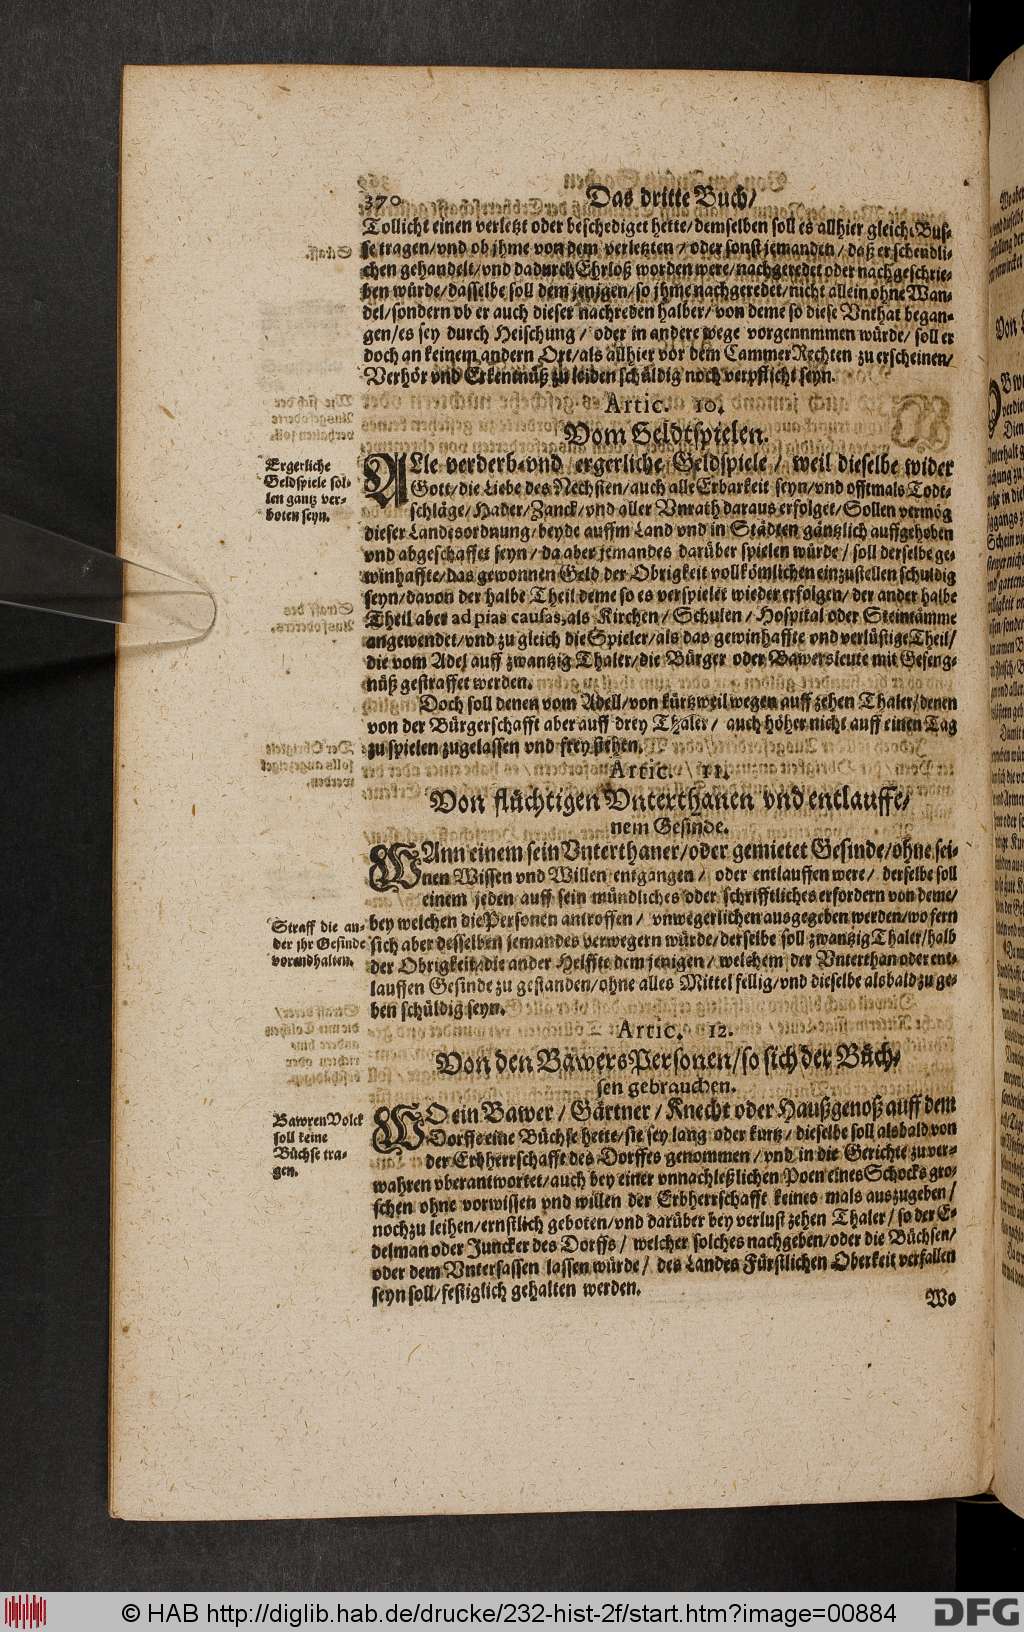 370
Das dritte Buch/
Tollicht einen verletzt oder beschediget hette/demselben soll es allhier gleich Bus-
se tragen/vnd ob jhme von dem verletzten/oder sonst jemanden/daß er schendli-
chen gehandelt/vnd dadurch Ehrloß worden were/nachgeredet oder nachgeschrie-
ben würde/dasselbe soll dem jenigen/so jhme nachgeredet/nicht allein ohne Wan-
del/sondern ob er auch dieser nachreden halber/von deme so diese Vnthat began-
gen/es sey durch Heischung/oder in andere wege vorgennmmen würde/soll er
doch an keinem andern Ort/als allhier vor dem CammerRechten zu erscheinen/
Verhör vnd Erkentnüß zu leiden schüldig noch verpflicht seyn.
Artic. 10.
Vom Geldtspielen.
Ergerliche
Geldspiele sol-
len gantz ver-
boten seyn.
ALle verderb-vnd ergerliche Geldspiele/weil dieselbe wider
Gott/die Liebe des Nechsten/auch alle Erbarkeit seyn/vnd offtmals Todt-
schläge/Hader/Zanck/vnd aller Vnrath daraus erfolget/Sollen vermög
dieser Landesordnung/beyde auffm Land vnd in Städten gäntzlich auffgehoben
vnd abgeschaffet seyn/da aber jemandes darüber spielen würde/soll derselbe ge-
winhaffte/das gewonnen Geld der Obrigkeit vollkömlichen einzustellen schuldig
seyn/davon der halbe Theil deme so es verspielet wieder erfolgen/der ander halbe
Theil aber ad pias causas, als Kirchen/Schulen/Hospital oder Steintämme
angewendet/vnd zu gleich die Spieler/als das gewinhaffte vnd verlüstige Theil/
die vom Adel auff zwantzig Thaler/die Bürger oder Bawersleute mit Gefeng-
nüß gestraffet werden.
Doch soll denen vom Adell/von kürtzweil wegen auff zehen Thaler/denen
von der Bürgerschafft aber auff drey Thaler/auch höher nicht auff einen Tag
zu spielen zugelassen vnd frey stehen.
Artic. 11.
Von flüchtigen Vnterthanen vnd entlauffe/
nem Gesinde.
WAnn einem sein Vnterthaner/oder gemietet Gesinde/ohne sei-
nen Wissen vnd Willen entgangen/oder entlauffen were/derselbe soll
einem jeden auff sein mündliches oder schrifftliches erfordern von deme/
Straff die an-
der jhr Gesinde
vorendhalten.
bey welchen die Personen antroffen/vnwegerlichen ausgegeben werden/wo fern
sich aber desselben jemandes verwegern würde/derselbe soll zwantzig Thaler/halb
der Obrigkeit/die ander Helffte dem jenigen/welchem der Vnterthan oder ent-
lauffen Gesinde zu gestanden/ohne alles Mittel fellig/vnd dieselbe alsbald zu ge-
ben schüldig seyn.
Artic. 12.
Von den BawersPersonen/so sich der Büch/
sen gebrauchen.
Bawren Volck
soll keine
Büchse tra-
gen.
WO ein Bawer/Gärtner/Knecht oder Haußgenoß auff dem
Dorffe eine Büchse hette/sie sey lang oder kurtz/dieselbe soll alsbald von
der Erbherrschafft des Dorffes genommen/vnd in die Gerichte zu ver-
wahren vberantwortet/auch bey einer vnnachleßlichen Poen eines Schocks gro-
schen ohne vorwissen vnd willen der Erbherrschafft keines mals auszugeben/
noch zu leihen/ernstlich geboten/vnd darüber bey verlust zehen Thaler/so der E-
delman oder Juncker des Dorffs/welcher solches nachgeben/oder die Büchsen/
oder dem Vntersassen lassen würde/des Landes Fürstlichen Oberkeit verfallen
seyn soll/festiglich gehalten werden.
Wo
© HAB http://diglib.hab.de/drucke/232-hist-2f/start.htm?image=00884
DFG